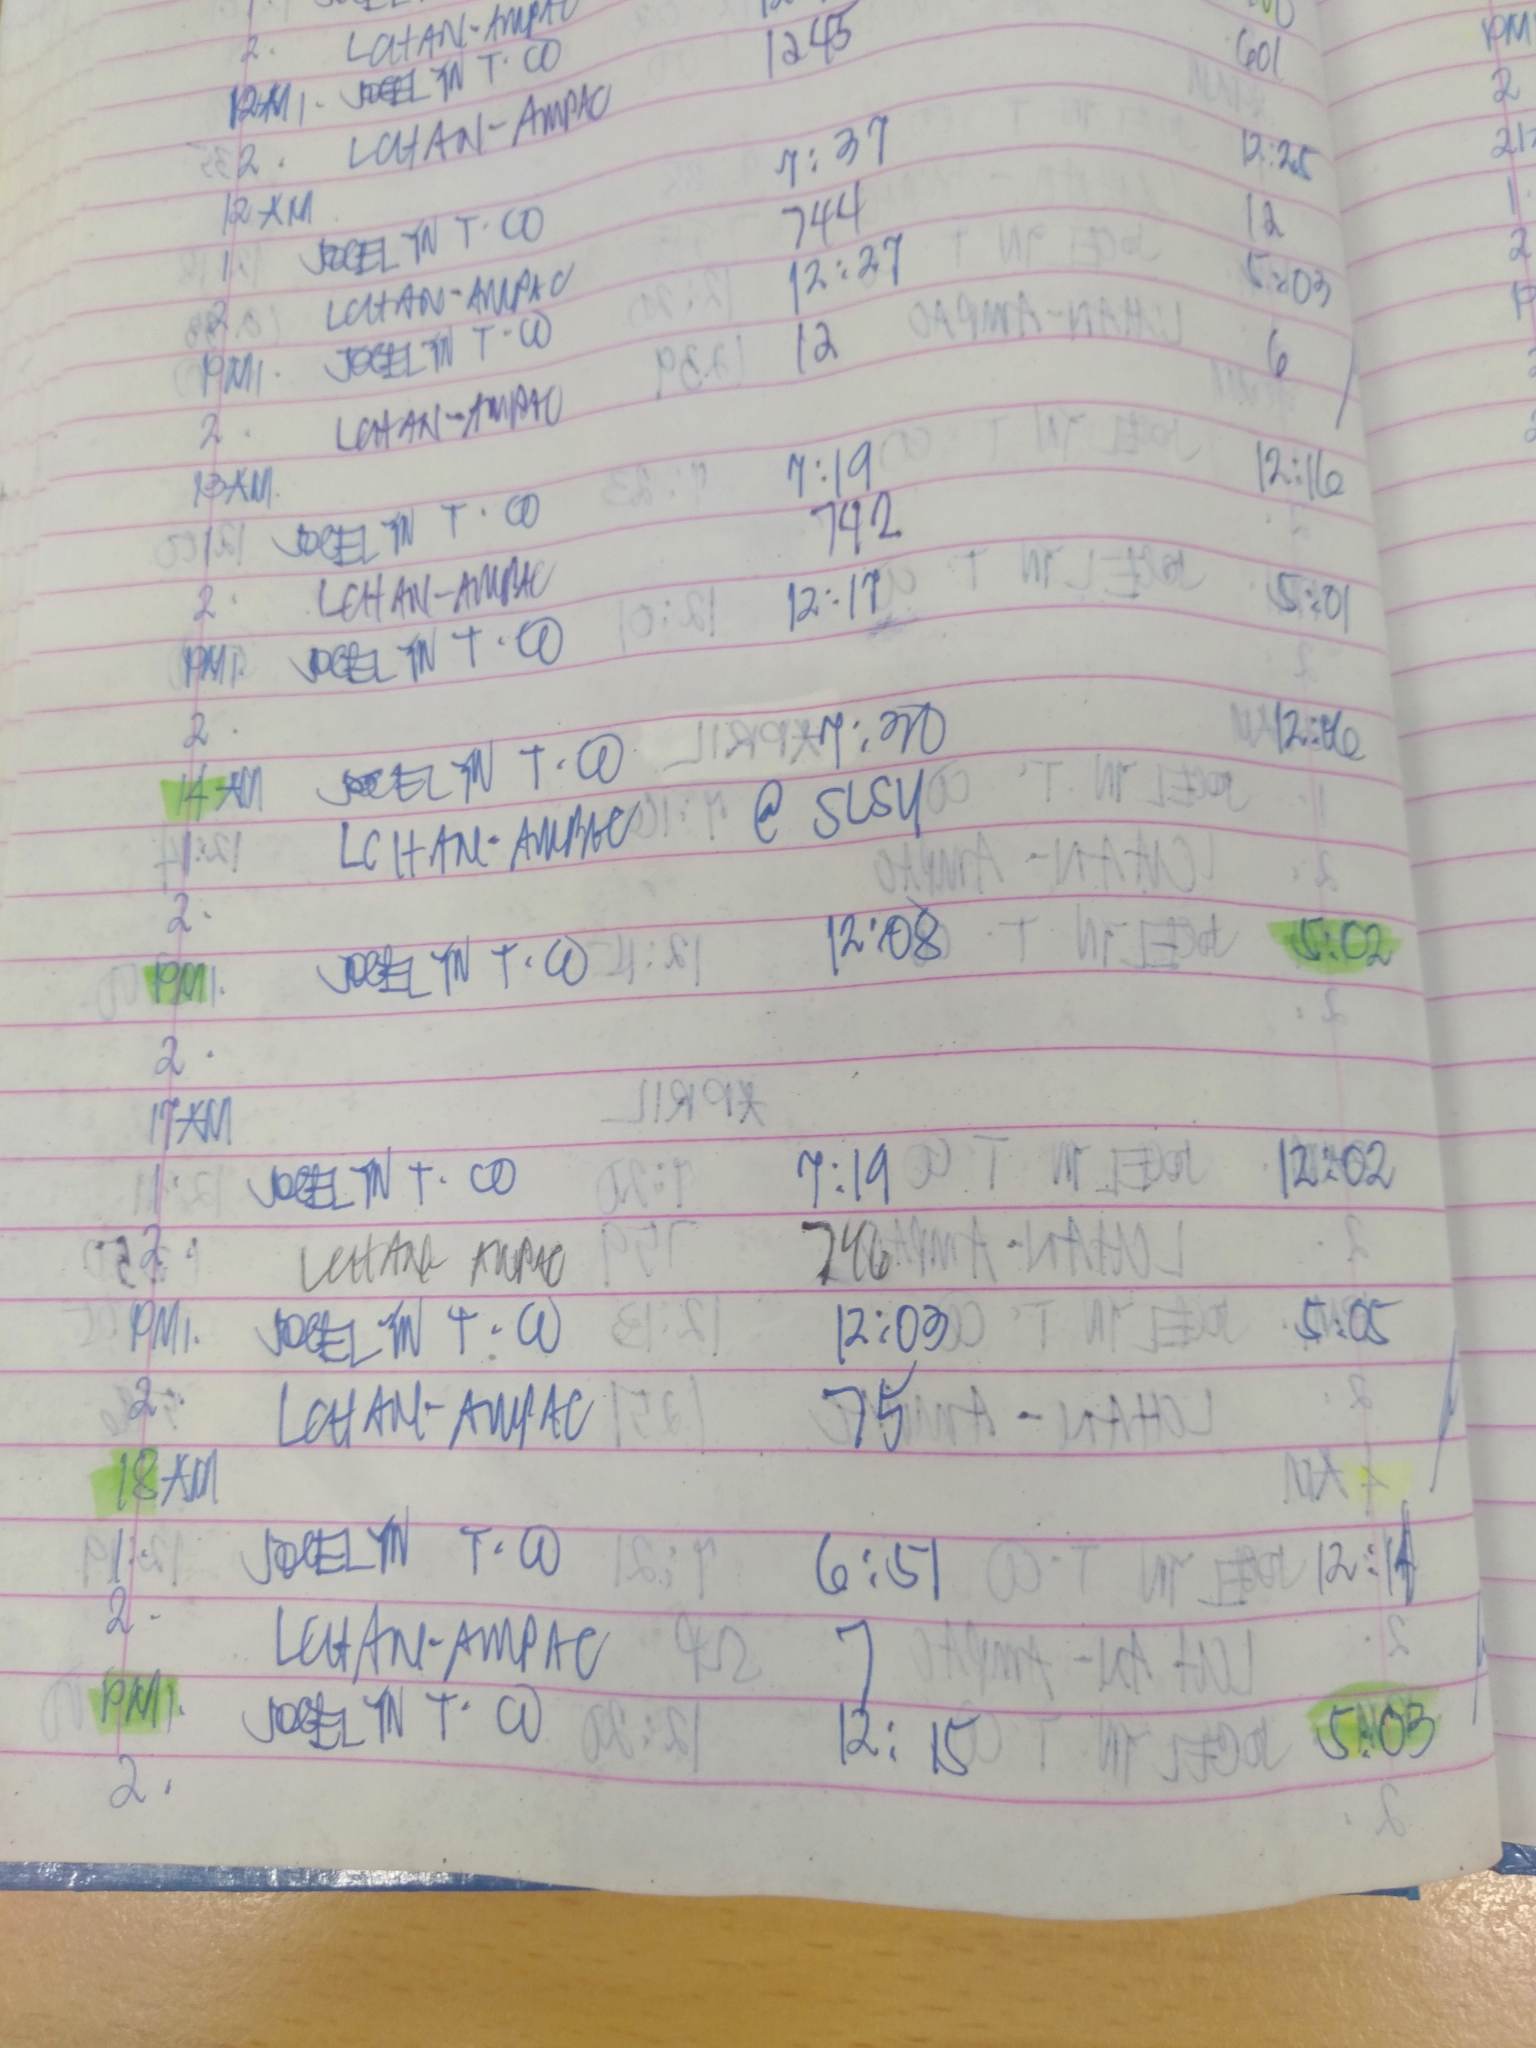 2. LCHAN-AMPAC 1245 601
PM1. JOCELYN T. CO
2. LCHAN-AMPAC
12 AM 7:37 12:25
1. JOCELYN T. CO 744 12
2. LCHAN-AMPAC 12:27 5:03
PM1. JOCELYN T. CO 12 6
2. LCHAN-AMPAC
13 AM 7:19 12:16
1 JOCELYN T. CO 742
2. LCHAN-AMPAC 12:17 5:01
PM1. JOCELYN T. CO
2.
14 AM JOCELYN T. CO 7:20 12:06
1. LCHAN-AMPAC @ SLSU
2.
PM1. JOCELYN T. CO 12:08 5:02
2.
17 AM
1 JOCELYN T. CO 7:19 12:02
2. LCHAN AMPAC 746
PM1. JOCELYN T. CO 12:03 5:05
2. LCHAN-AMPAC 75
18 AM
1. JOCELYN T. CO 6:51 12:14
2. LCHAN-AMPAC 7
PM1. JOCELYN T. CO 12:15 5:03
2.